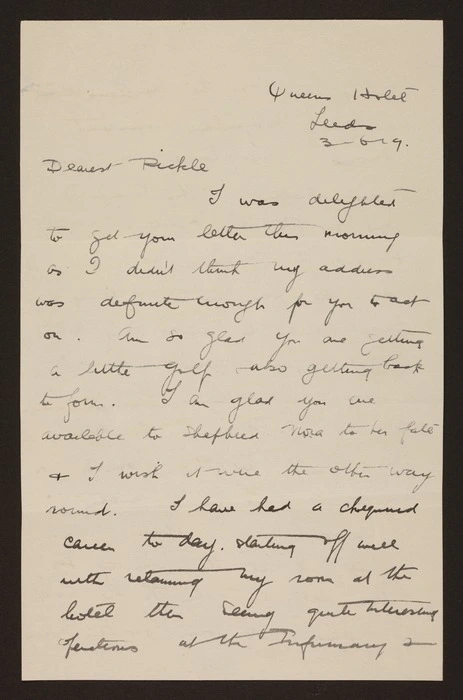 Queens Hotel
Leeds
3-6-19.
Dearest Pickle
I was delighted
to get your letter this morning
as I didn't think my address
was definite enough for you to act
on. Am so glad you are getting
a little golf & also getting back
to form. I am glad you are
available to shepherd Nora to her fate
& I wish it were the other way
round. I have had a chequered
career to day. starting off well
with retaining my room at the
hotel then seeing quite interesting
at the Infirmary &